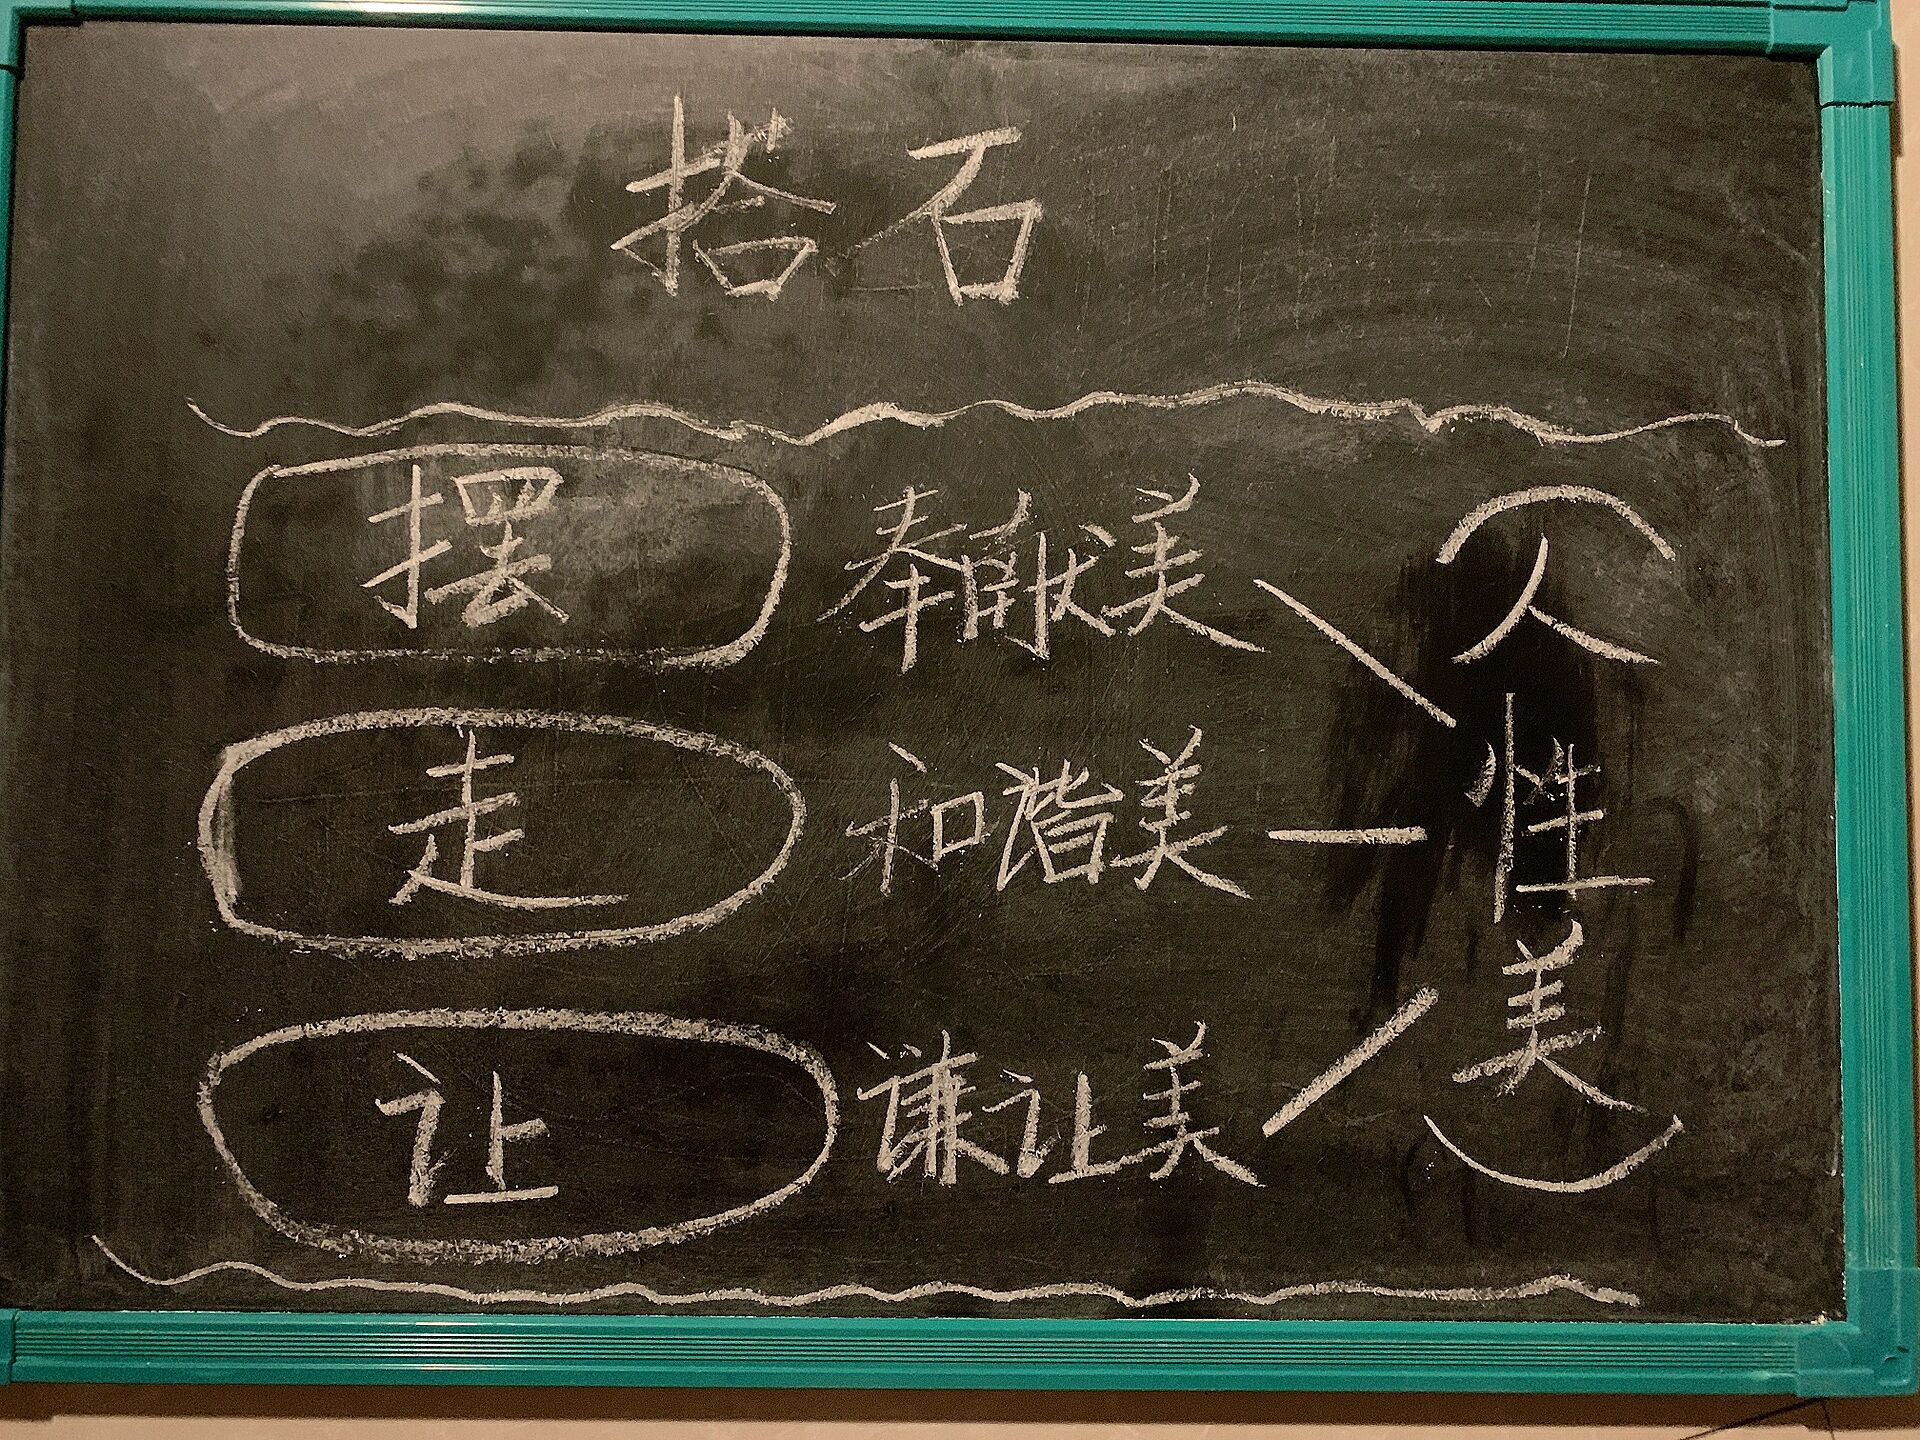 搭石
摆 奉献美
走 和谐美
让 谦让美
人性美